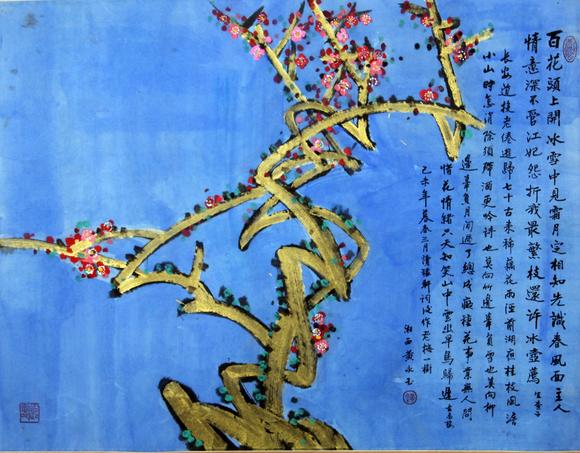 百花頭上開冰雪中見霜月定相知先識春風面主人
情意深不管江妃怨折我最繁枝還許冰壺薦 生查子
長安道投老倦遊歸七十古來稀藕花雨濕前湖夜桂枝風澹
小山時怎消除須殢酒更吟詩也莫向竹邊辜負雪也莫向柳
邊辜負月閒過了總成癡種花事業無人問
惜花情緒只天知笑山中雲出早鳥歸遲
己未年暮春三月讀稼軒詞後作老梅一樹
湘西黃永玉